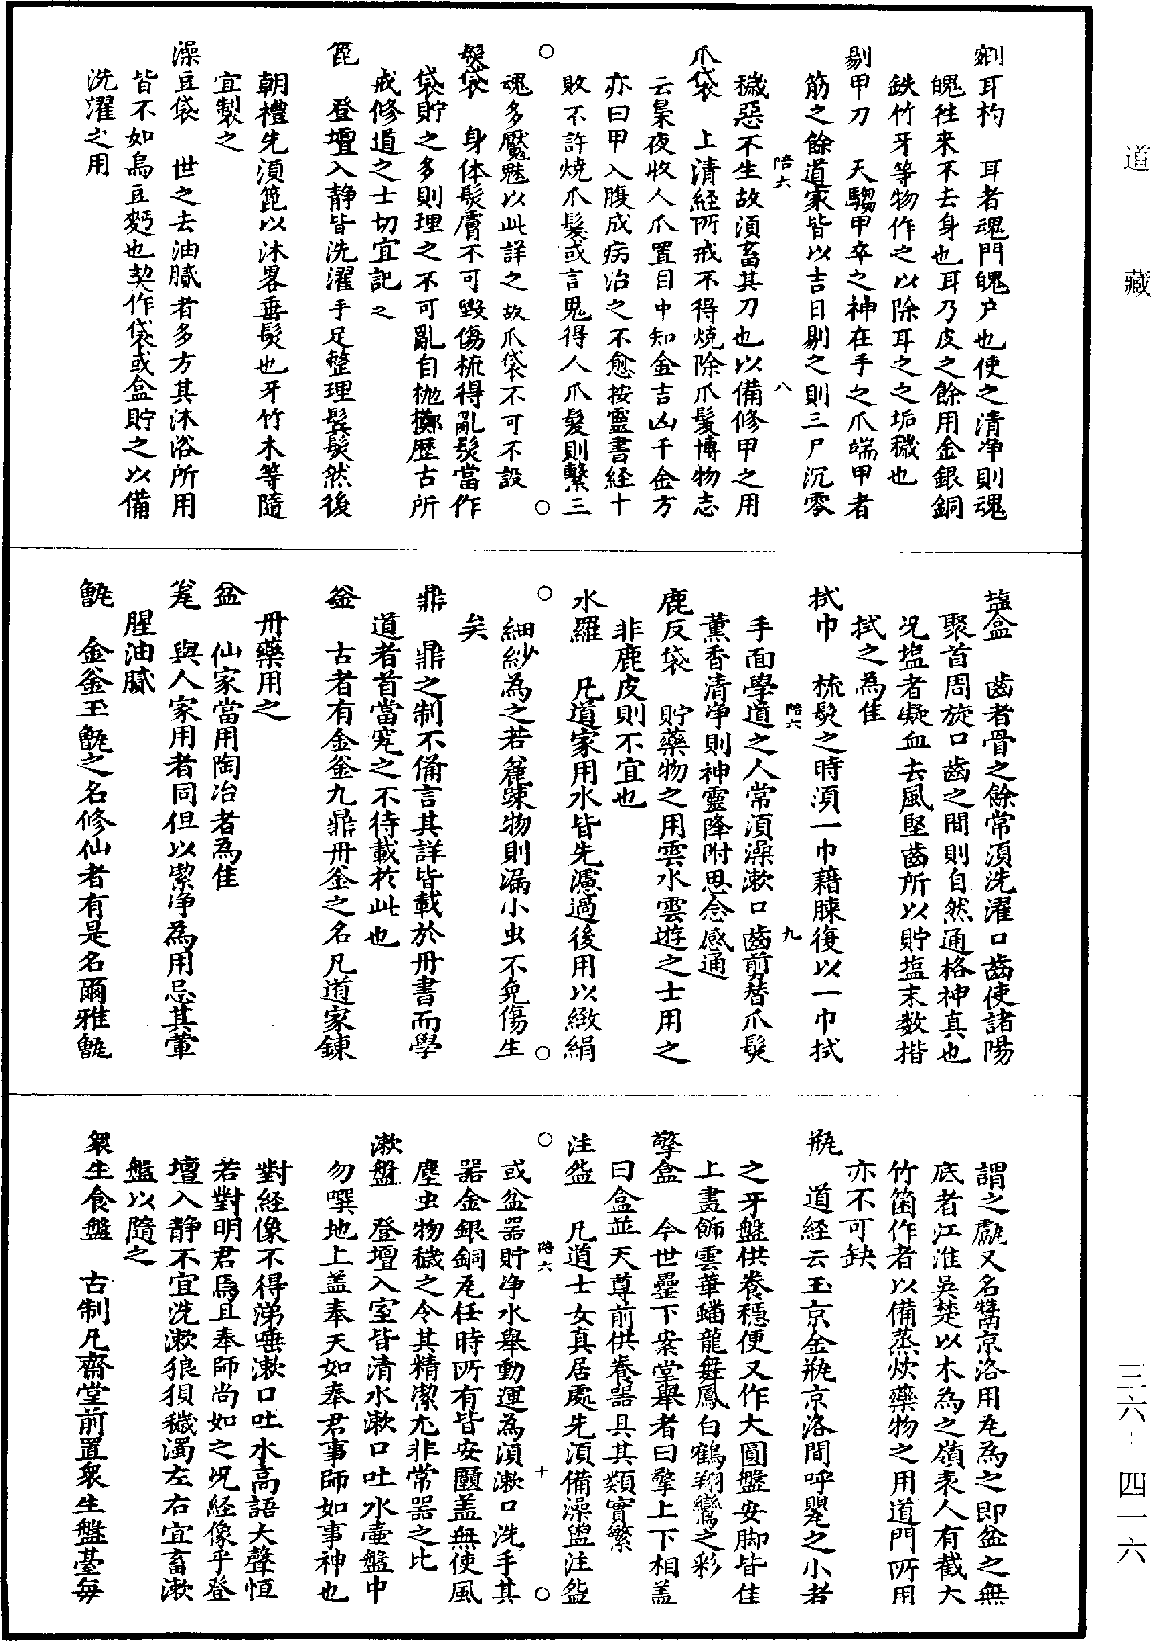 道藏
三六·四一六
剜耳杓　耳者魂門魄户也使之清净則魂
魄徃來不去身也耳乃皮之餘用金銀銅
鉄竹牙等物作之以除耳之之垢穢也
剔甲刀　天騶甲卒之神在手之爪端甲者
筋之餘道家皆以吉日剔之則三尸沉零
陪六　八
穢惡不生故須畜其刀也以備修甲之用
爪袋　上清經所戒不得燒除爪髮博物志
云梟夜收人爪置目中知金吉凶千金方
亦曰甲入腹成病冶之不愈按靈書経十
敗不許燒爪髮或言鬼得人爪髮則繫三
魂多魘魅以此詳之故爪袋不可不設
髮袋　身体髮膚不可毁傷梳得亂髮當作
袋貯之多則理之不可亂自抛擲歴古所
戒修道之士切宜記之
篦　登壇入静皆洗濯手足整理鬂髮然後
朝禮先須篦以沐畧垂髮也牙竹木等隨
宜製之
澡豆袋　世之去油膩者多方其沐浴所用
皆不如烏豆麪也契作袋或盒貯之以備
洗濯之用
鹽盒　齒者骨之餘常須洗濯口齒使諸陽
聚首周旋口齒之間則自然通格神真也
况塩者凝血去風堅齒所以貯塩末数揩
拭之為佳
拭巾　梳髮之時須一巾藉腖復以一巾拭
陪六　九
手面學道之人常須澡漱口齒剪替爪髮
薰香清净則神靈降附思念感通
鹿反袋　貯藥物之用雲水雲遊之士用之
非鹿皮則不宜也
水羅　凡道家用水皆先濾過後用以緻絹
細紗為之若麄踈物則漏小虫不免傷生
矣
鼎　鼎之制不俻言其詳皆載於丹書而學
道者首當究之不待載於此也
釜　古者有金釜九鼎丹釜之名凡道家鍊
丹藥用之
盆　仙家當用陶冶者為佳
㽃　與人家用者同但以絜净為用忌其葷
腥油膩
甑　金釜玉甑之名修仙者有是名爾雅甑
謂之甗又名鬵京洛用瓦為之即盆之無
底者江淮吳楚以木為之嶺表人有截大
竹筒作者以備蒸炊藥物之用道門所用
亦不可缺
瓶　道经云玉京金瓶京洛間呼甖之小者
之牙盤供養穩便又作大圓盤安脚皆佳
上畫飾雲華蟠龍舞鳳白鶴翔鸞之彩
擎盒　今世疊下案堂舉者曰擎上下相盖
曰盒並天尊前供養器具其類實繁
注盌　凡道士女真居處先須備澡盥注盌
陪六　十
或盆器貯净水舉動運為須漱口洗手其
器金銀銅瓦任時所有皆安匾盖無使風
塵虫物穢之令其精潔尤非常器之比
漱盤　登壇入室皆清水漱口吐水壷盤中
勿噀地上盖奉天如奉君事師如事神也
對経像不得涕唾漱口吐水高語大聲恒
若對明君焉且奉師尚如之况経像乎登
壇入静不宜洗漱狼狽穢濁左右宜畜漱
盤以隨之
衆生食盤　古制凡齋堂前置衆生盤䑓每